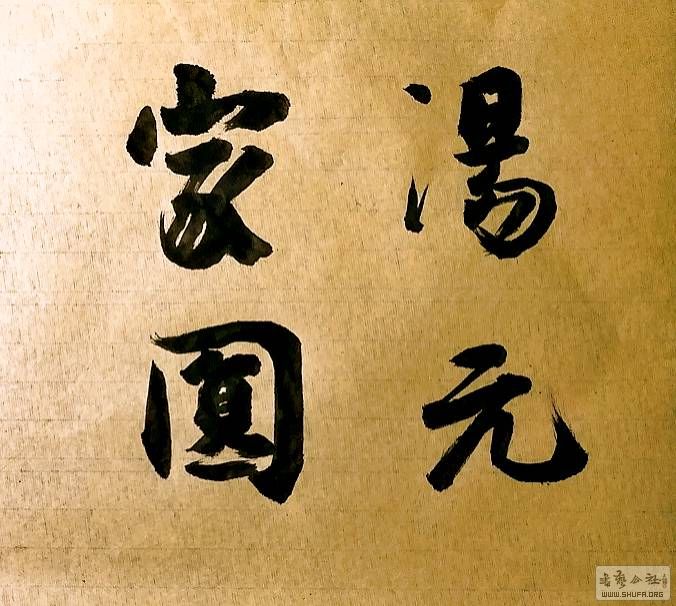 湯元
家圓
書藝公社
WWW.SHUFA.ORG